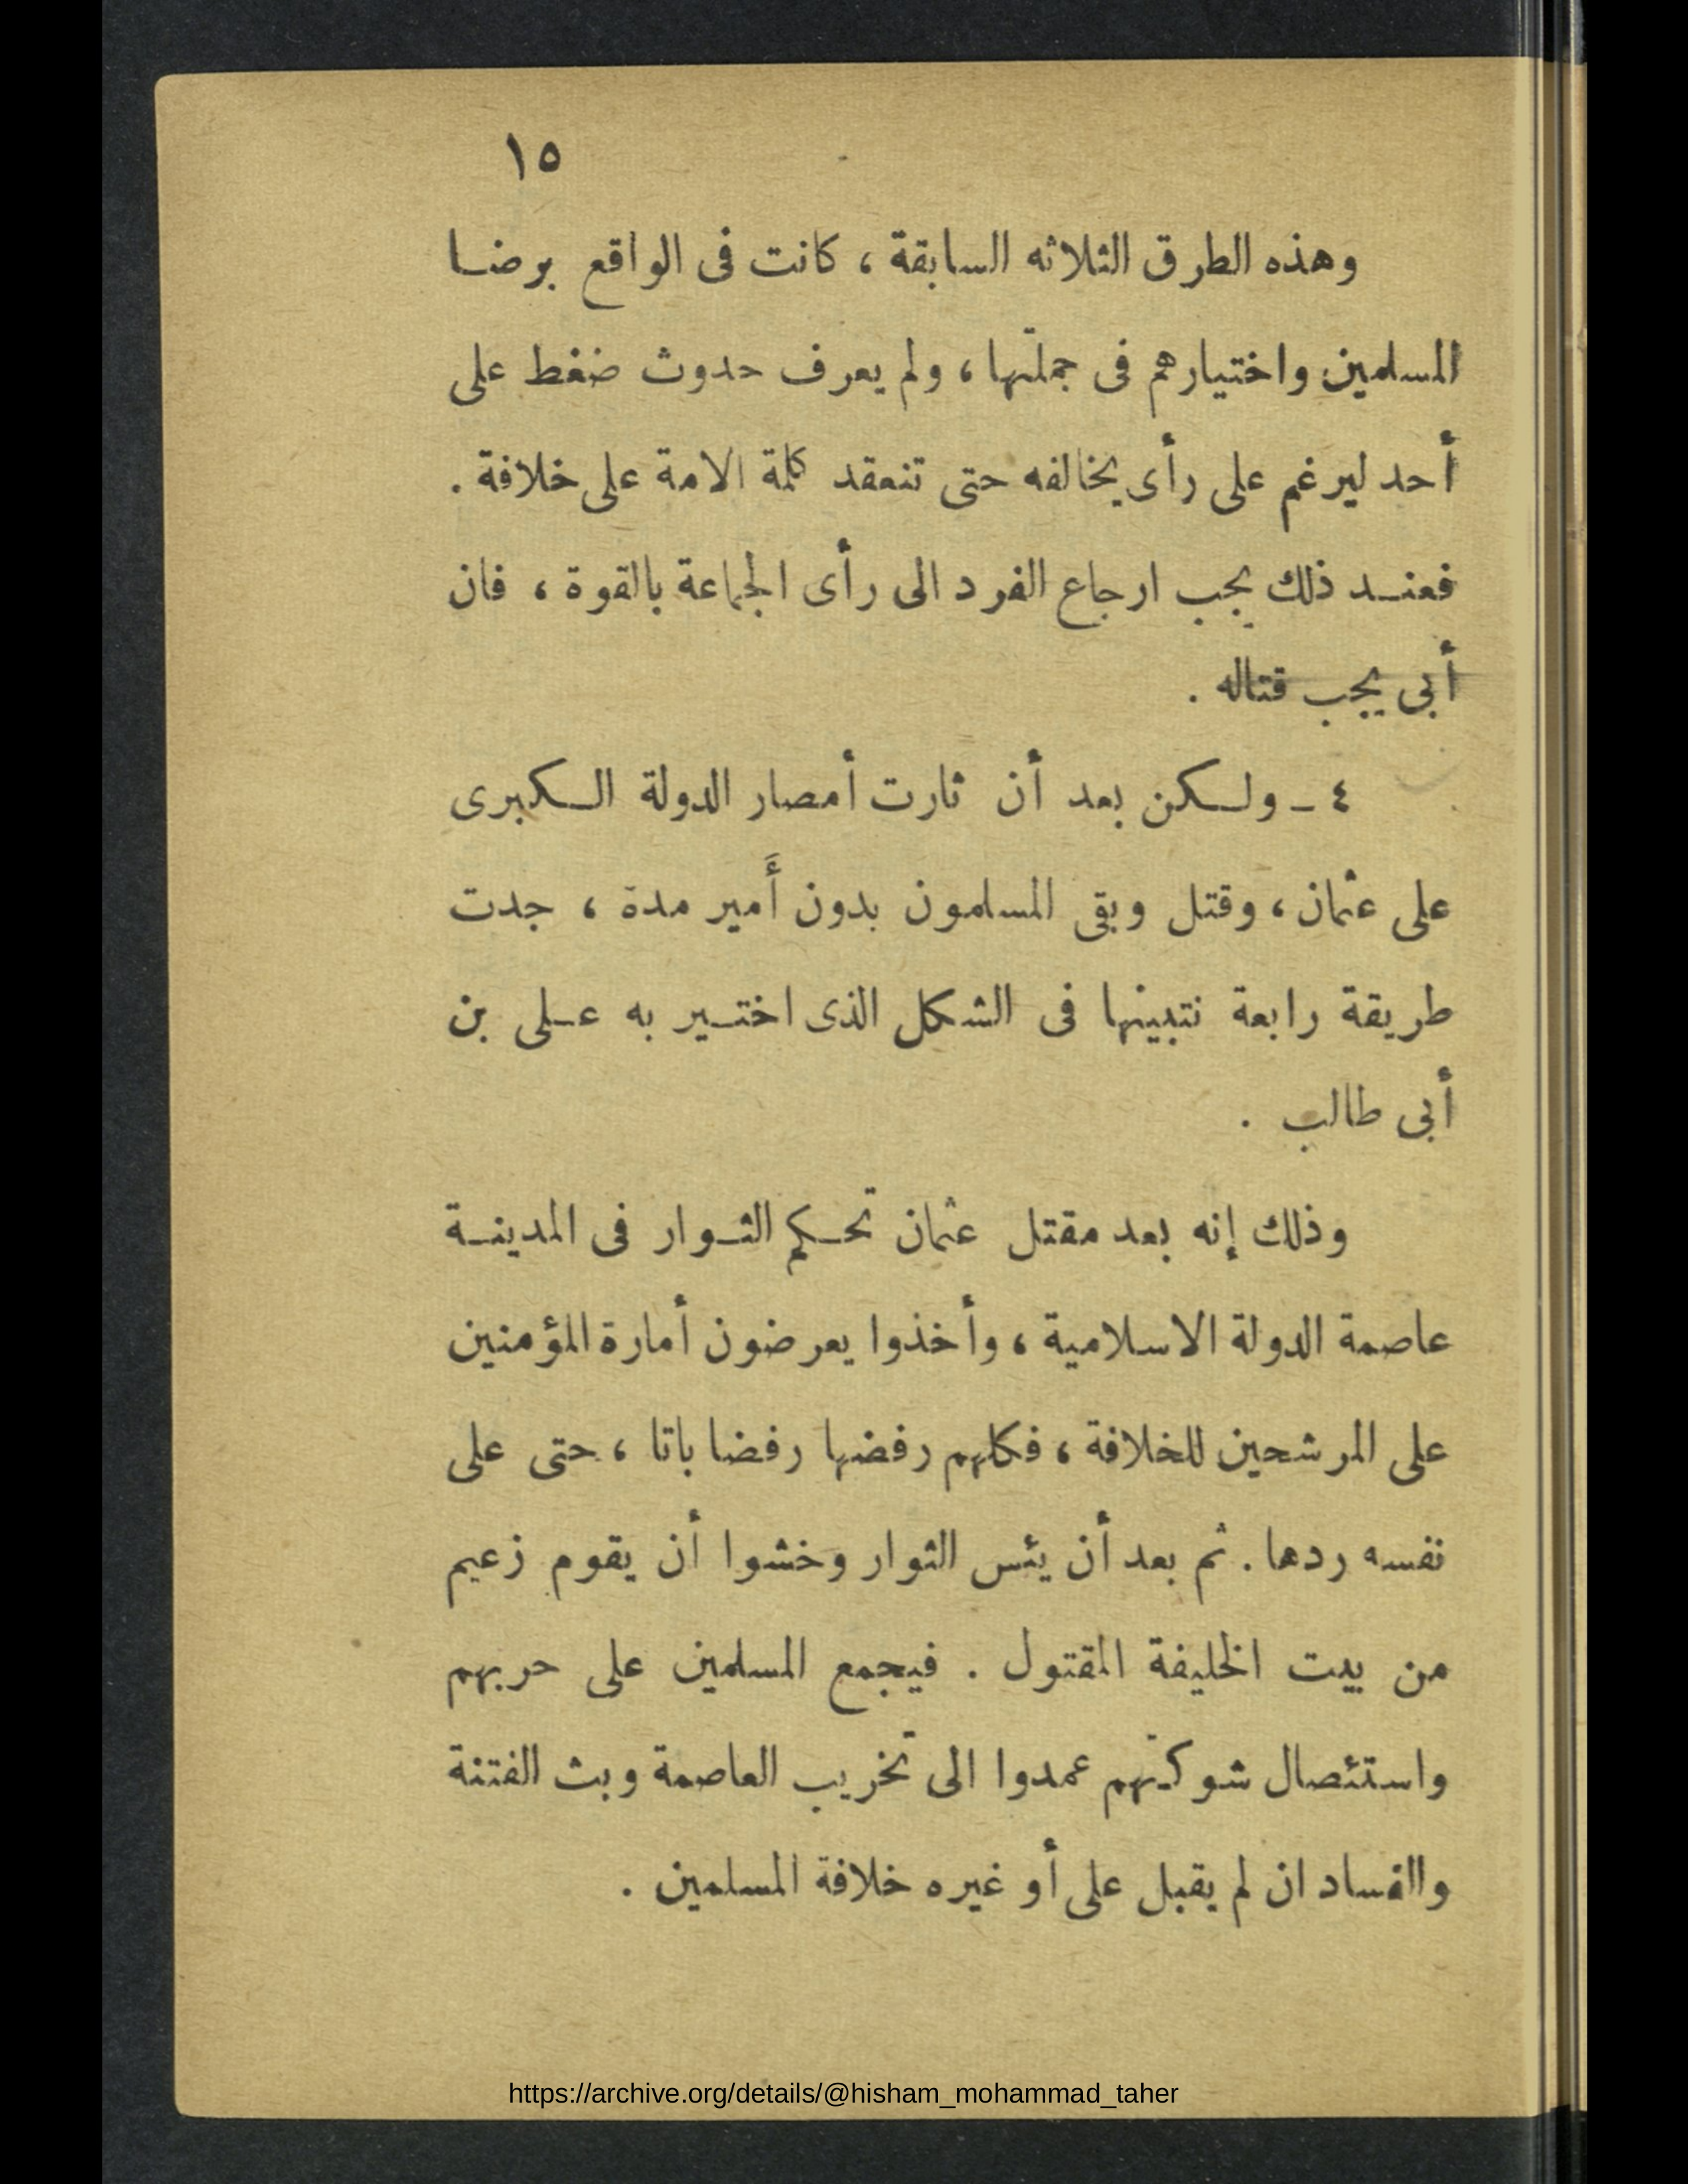 ١٥
وهذه الطرق الثلاثه السابقة ، كانت فى الواقع برضا
المسلمين واختيارهم فى جملتها ، ولم يعرف حدوث ضغط على
أحد ليرغم على رأى يخالفه حتى تنعقد كلمة الامة على خلافة .
فعند ذلك يجب ارجاع الفرد الى رأى الجماعة بالقوة ، فان
أبى يجب قتاله .
٤ ــ ولكن بعد أن ثارت أمصار الدولة الكبرى
على عثمان ، وقتل وبقى المسلمون بدون أَمير مدة ، جدت
طريقة رابعة نتبينها فى الشكل الذى اختير به على بن
أبى طالب .
وذلك إنه بعد مقتل عثمان تحكم الثوار فى المدينة
عاصمة الدولة الاسلامية ، وأخذوا يعرضون أمارة المؤمنين
على المرشحين للخلافة ، فكلهم رفضها رفضا باتا ، حتى على
نفسه ردها . ثم بعد أن يئس الثوار وخشوا أن يقوم زعيم
من بيت الخليفة المقتول . فيجمع المسلمين على حربهم
واستئصال شوكتهم عمدوا الى تخريب العاصمة وبث الفتنة
والفساد ان لم يقبل على أو غيره خلافة المسلمين .
https://archive.org/details/@hisham_mohammad_taher